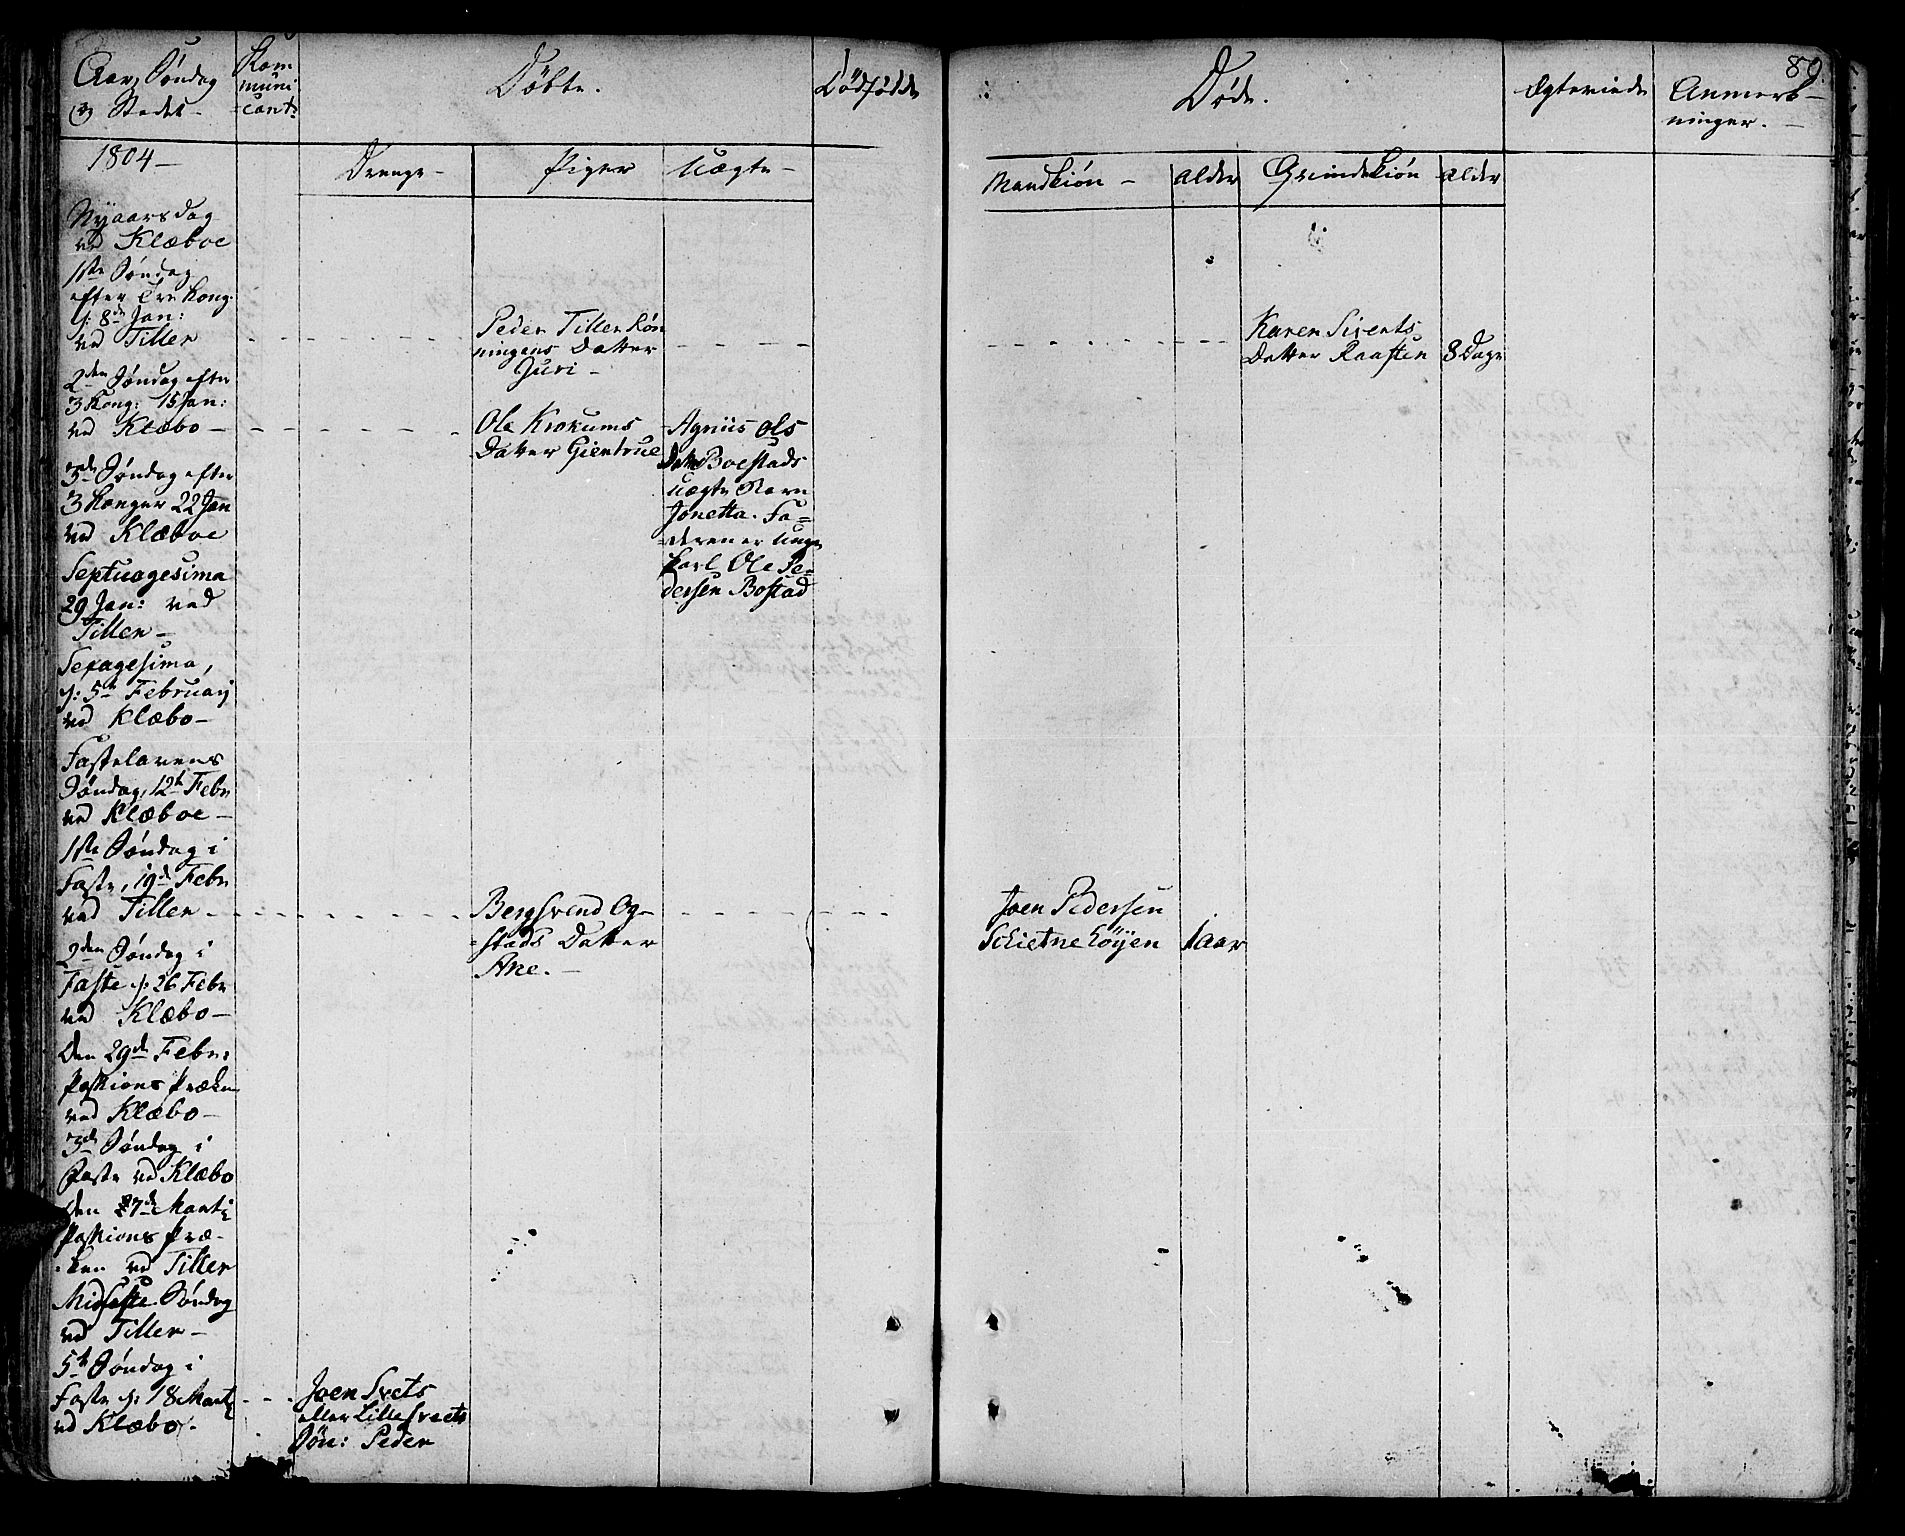 Aar, Søndag
og Stedet -
Kom
muni
=cant:
Døbte.
Dødfødde
Døde.
Ægteviede
Anmerk-
ninger. -
89.
1804 -
Drenge -
Piger
Uægte -
Mandkiøn -
Alder
Qvindekiøn
Alder
Nyaarsdag
ved Klæboe
1ste Søndag
efter Tre Kong.
d: 8de Jan:
ved Tiller
Peder Tiller Røn
ningens Datter
Guri -
Karen Siverts
Datter Raaften
8 Dage
2den Søndag efter
3 Kong: 15 Jan:
ved Klæbo -
Ole Krokums
Datter Giertrue
Agniis Ols
Datter Boestads
uægte Barn
Jonetta. Fa=
=deren er unge
karl Ole Pe=
dersen Bostad
3de Søndag efter
3 Konger 22 Jan
ved Klæboe
Septuagesima
29 Jan: ved
Tiller -
Sexagesima,
d: 5te Februarij
ved Klæbo -
Fastelavens
Søndag, 12te Febr
ved Klæboe -
1ste Søndag i
Faste, 19de Febr
ved Tiller -
Bergsvend Og=
=stads Datter
Ane. -
Joen Pedersen
Schietnehøyen
1 aar
2den Søndag i
Faste d: 26 Febr
ved Klæbo -
Den 29de Febr:
Passions Præken
ved Klæbo -
3de Søndag i
Faste ved Klæbo
den 7de Martii
Passions Præ-
ken ved Tiller
Midfaste Søndag
ved Tiller -
5te Søndag i
Faste d: 18 Martii
ved Klæbo -
Joen Svets
eller Lillesveets
Søn: Peder